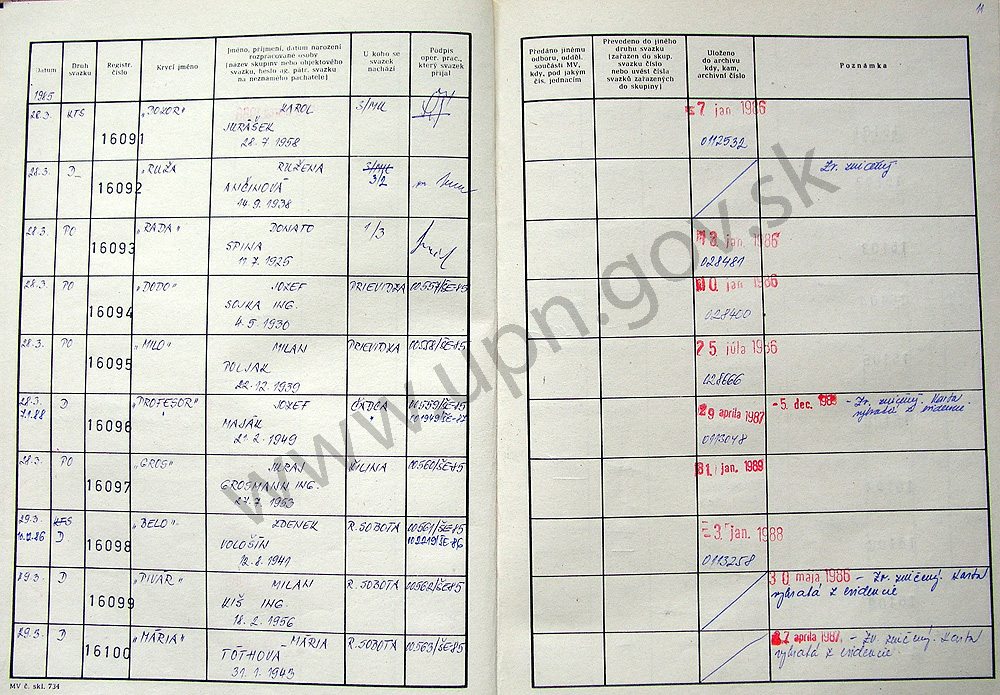 11
Datum
Druh svazku
Registr. číslo
Krycí jméno
Jméno, příjmení, datum narození
rozpracované osoby
(název skupiny nebo objektového
svazku, heslo ag. pátr. svazku
na neznámého pachatele)
U koho se
svazek
nachází
Podpis
oper. prac.,
který svazek
přijal
Předáno jinému
odboru, odděl.
součásti MV,
kdy, pod jakým
čís. jednacím
Převedeno do jiného
druhu svazku
(zařazen do skup.
svazku číslo
nebo uvést čísla
svazků zařazených
do skupiny)
Uloženo
do archivu
kdy, kam,
archivní číslo
Poznámka
1985
28.3. KTS 16091 "BOKOR" KAROL S/MK 7. jan 1986
JURÁŠEK
28.7.1958 0112532
28.3. D 16092 "RUŽA" RUŽENA S/MK Zv. zničený
ANČINOVÁ 3/2
14.9.1938
28.3. PO 16093 "RADA" DONATO 1/3 8. jan. 1986
SPINA 028481
11.7.1925
28.3. PO 16094 "DODO" JOZEF PRIEVIDZA 00557/ŠE-85 0 jan 1986
SOJKA ING. 028400
4.5.1930
28.3. PO 16095 "MILO" MILAN PRIEVIDZA 00558/ŠE-85 25 júla 1986
POLJAK 028666
22.12.1939
28.3. D 16096 "PROFESOR" JOZEF ČADCA 00559/ŠE-85 29 apríla 1987 -5. dec. 1988 - Zv. zničený. Karta
7.1.88 MAJÁK 101949/ŠE-87 vybratá z evidencie
21.2.1949 0113048
28.3. PO 16097 "GROS" JURAJ ŽILINA 00560/ŠE-85 31. jan. 1989
GROSMANN ING.
27.7.1953
29.3. KTS 16098 "BELO" ZDENEK R. SOBOTA 00561/ŠE-85 3. jan. 1988
10.12.86 D VOLOŠIN 102219/ŠE-86
12.8.1941 0113258
29.3. D 16099 "PIVÁR" MILAN R. SOBOTA 00562/ŠE-85 30 maja 1986 - Zv. zničený. Karta
KIŠ ING vybratá z evidencie
18.2.1956
29.3. D 16100 "MÁRIA" MÁRIA R. SOBOTA 00563/ŠE-85 apríla 1987 - Zv. zničený. Karta
TÓTHOVÁ vybratá z evidencie
31.1.1945
MV č. skl. 734
www.upn.gov.sk